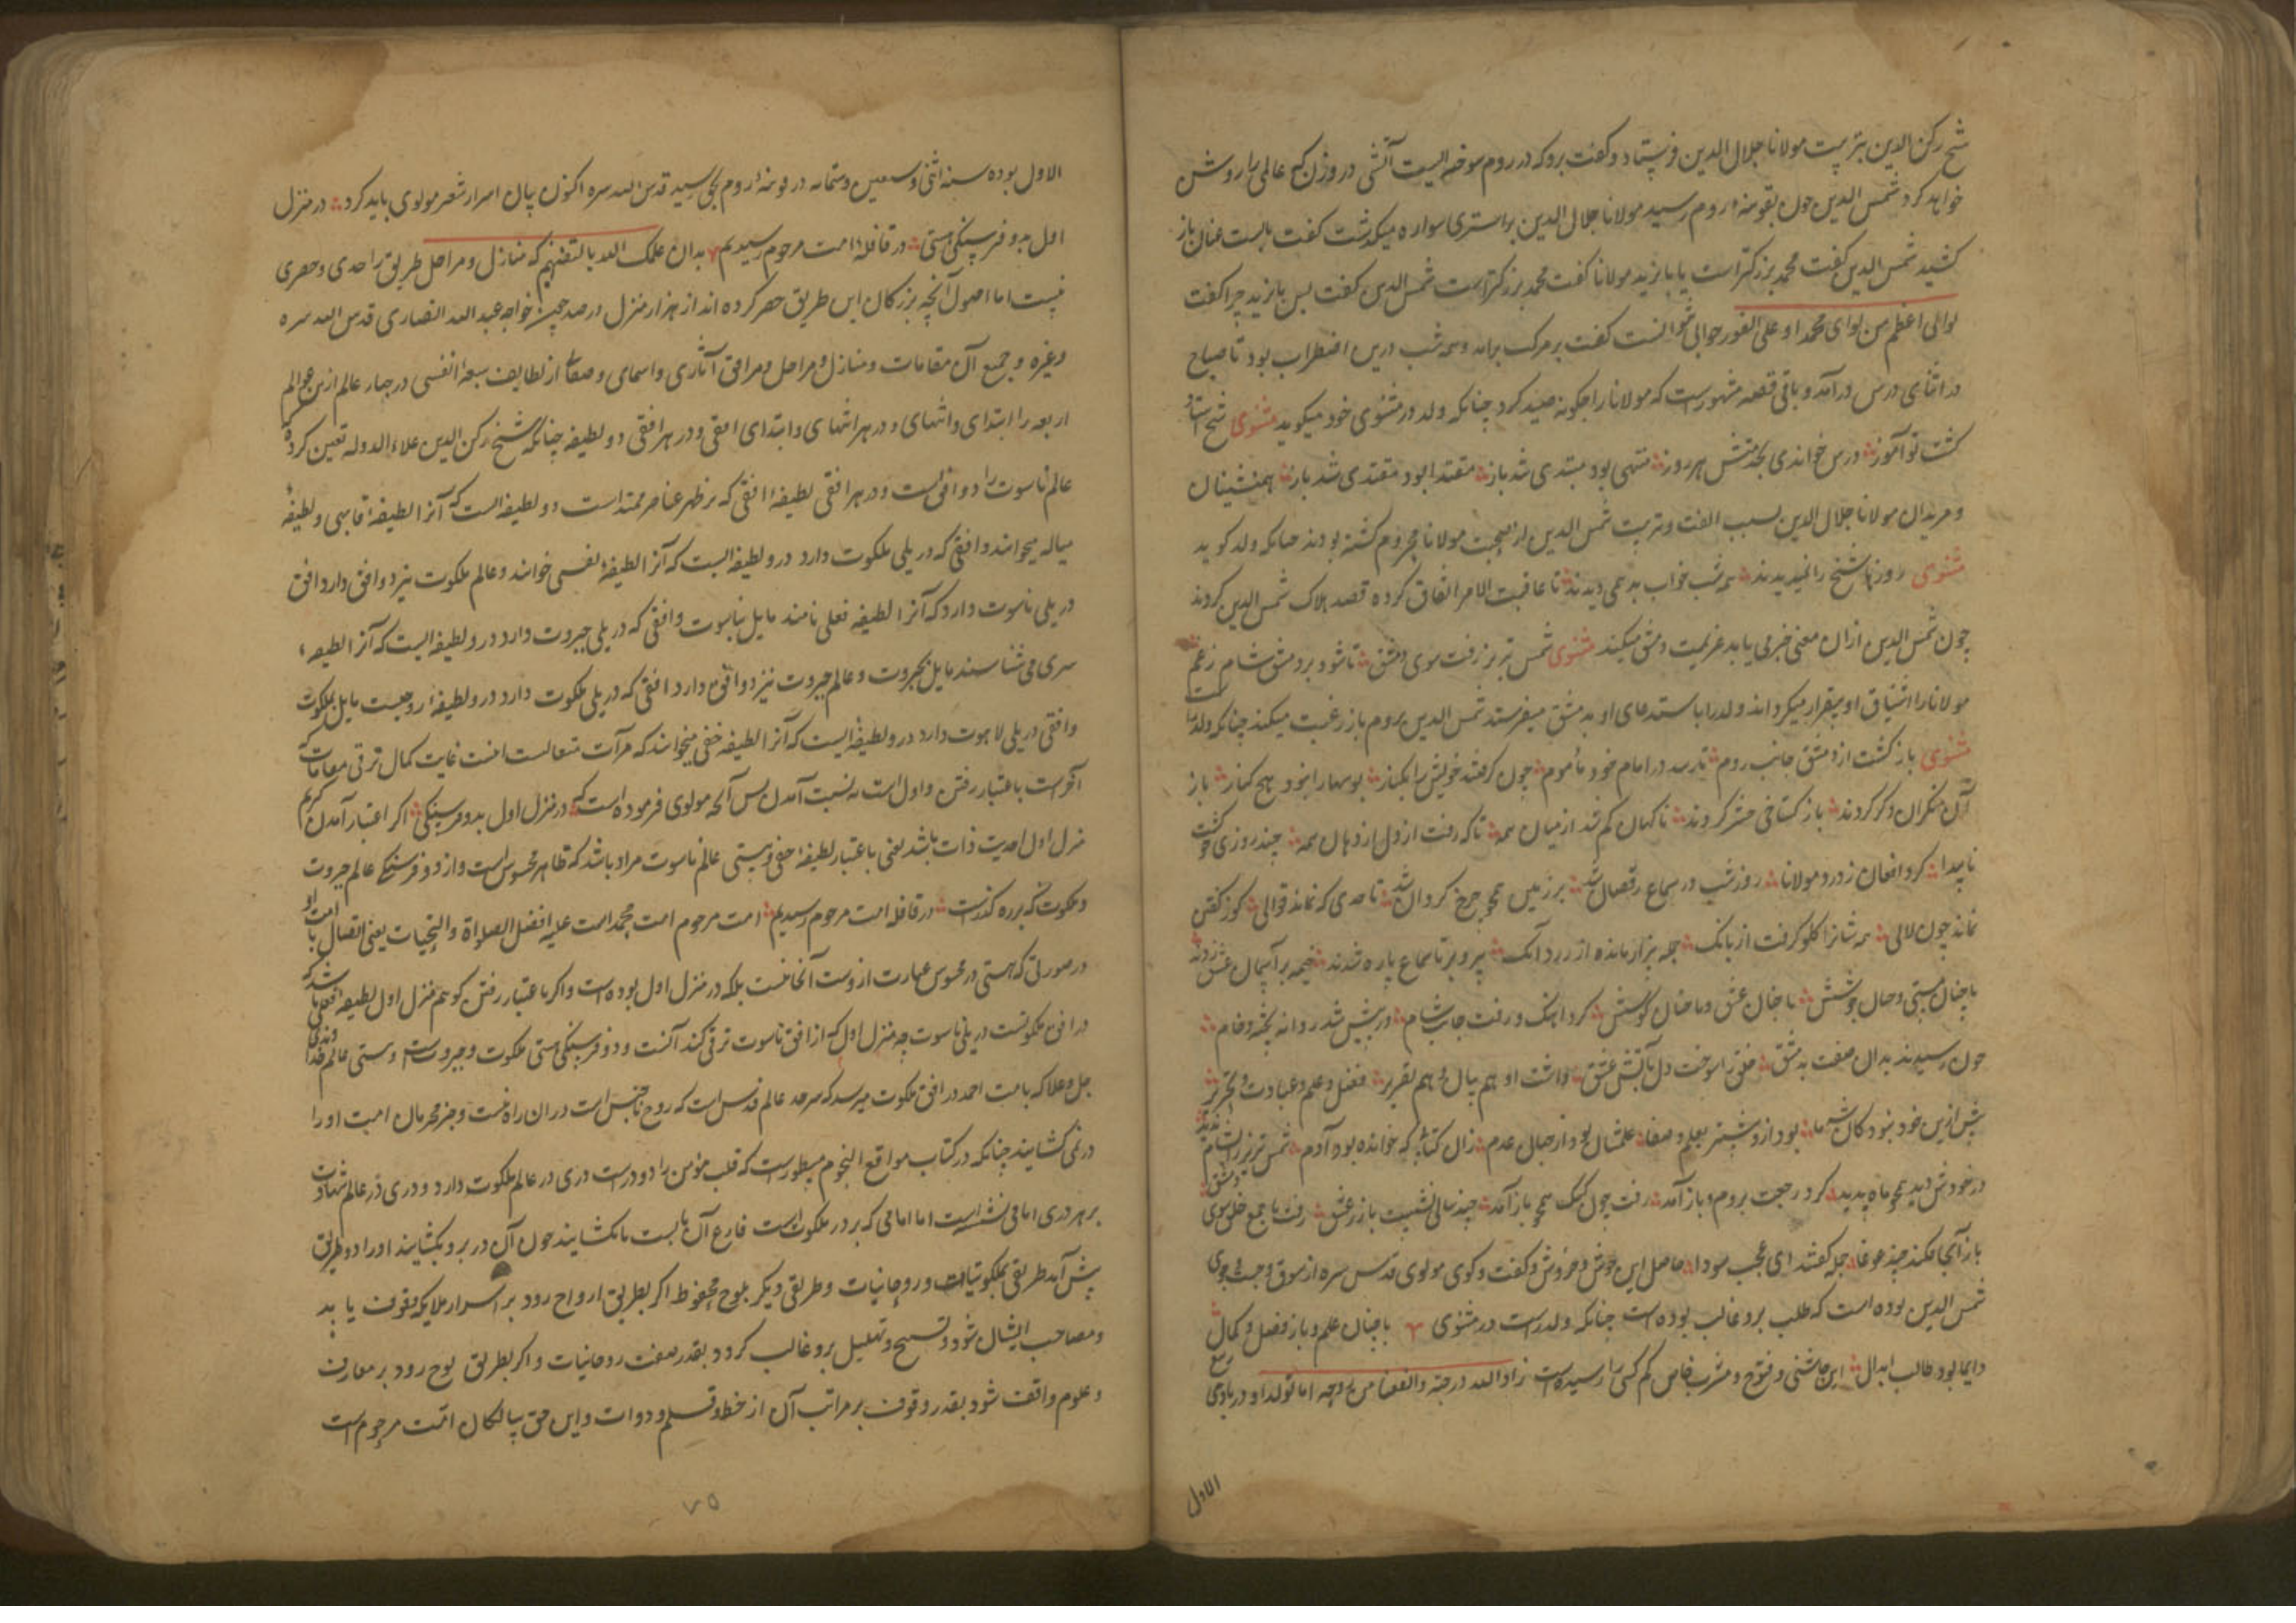 شیخ رکن الدین بتربیت مولانا جلال الدین فرستاد و گفت برو که در روم سوخته ایست آتشی در وزن که عالمی را روشن
خواهد کرد شمس الدین چون بقونیهٔ روم رسید مولانا جلال الدین بر استری سواره میگذشت گفت بایست عنان باز
کشید شمس الدین گفت محمد بزرکتر است یا بایزید مولانا گفت محمد بزرکتر است شمس الدین گفت پس بایزید چرا گفت
لوائی اعظم من لوای محمد او علی الفور جوابی گفت بر مرکب براند و همه شب درین اضطراب بود تا صباح
در اثنای درس درآمد و باقی قصه مشهورست که مولانا را چگونه صید کرد چنانکه ولد در مثنوی خود میگوید مثنوی شیخ استاد
گشت نوآموز درس خواندی بخدمتش هر روز منتهی بود مبتدی شد باز مقتدا بود مقتدی شد باز همنشینان
و مریدان مولانا جلال الدین بسبب الفت و تربیت شمس الدین از صحبت مولانا محروم گشته بودند چنانکه ولد گوید
مثنوی روزها شیخ را نمیدیدند همه شب خواب بد همی دیدند تا عاقبت الامر اتفاق کرده قصد هلاک شمس الدین کردند
چون شمس الدین ازان معنی خبر می یابد عزیمت دمشق میکند مثنوی شمس تبریز رفت سوی دمشق تا شود پر دمشق شام ز عشق
مولانا را اشتیاق او بیقرار میکرداند ولد را باستدعای او بدمشق میفرستد شمس الدین بروم باز رغبت میکند چنانکه ولد
مثنوی باز گشت از دمشق جانب روم تا رسد در امام خود ماموم چون گرفتند خویش را بکنار بوسها را نبود هیچ کنار باز
آن منکران دگر کردند باز گستاخی کردند ناگهان گم شد از میان همه تا که رفت از دل اندهان همه چند روزی چو گشت
ناپیدا کرد افغان ز درد مولانا روز شب در سماع رقصان شد بر زمین همچو چرخ گردان شد تا حدی که نماند قوالی کو ز گفتن
نماند چون لالی همه شانرا گلو گرفت از بانگ جمله بیزار مانده از زر و دانگ پیر و برنا سماع باره شدند خیمه بر آسمان عشق زدند
با چنان مستی و چنان جوشش با چنان عشق و با چنان کوشش کرد آهنگ و رفت جانب شام در پیش شد روانه پخته و خام
چون رسیدند بدان صفت بدمشق خلق را سوخت دل بآتش عشق داشت او هم بیان و هم تقریر فضل و علم و عبادت و تحریر
پیش ازین خود نبود کان شه ما بود ازو بیشتر بعلم و صفا علمشان بود از جبال عدم زان کتابی که خوانده بود آدم شمس تبریز را بشام ندید
در خودش دید همچو ماه پدید کرد رجعت بروم و باز آمد رفت چون کبک همچو باز آمد چند سالی نشست باز ز عشق رفت با جمع خلق سوی دمشق
باز آنجا فکند چند غوغا جمله گفتند ای عجب سودا حاصل این جوش و خروش و گفت و گوی مولوی قدس سره از سوق و جست و جوی
شمس الدین بوده است که طلب برو غالب بوده است چنانکه ولد راست در مثنوی با چنان علم و باز فضل و کمال
دایما بود طالب ابدال این چاشنی و فتوح و مشرب خاص کم کسی را رسیده است زاد الله درجته و افض من روحه اما تولد او در ربیع
الاول
الاول بوده سنه اثنی و سبعین و ستمایه در قونیهٔ روم بحق رسید قدس الله سره اکنون بیان اسرار شعر مولوی باید کرد در منزل
اول بدو فرسنگی هستی در قافلهٔ امت مرحوم رسیدیم بدان علمک الله بالتفهیم که منازل و مراحل طریق را حدی و حصری
نیست اما اصول آنچه بزرکان این طریق حصر کرده اند از هزار منزل خواجه عبد الله انصاری قدس الله سره
و غیره و جمیع آن مقامات و منازل و مراحل و مراقی آثاری و اسمای و صفاتی از لطایف سبعهٔ انفسی در چهار عالم ازین عوالم
اربعه را ابتدای و انتهای و در هر انتهای و ابتدای افقی و در هر افقی دو لطیفه چنانکه شیخ رکن الدین علاء الدوله تعین کرده
عالم ناسوت را دو افق است و در هر افقی لطیفهٔ افقی که بر ظهر عناصر ممتد است دو لطیفه است که آنرا لطیفهٔ قالبی و لطیفهٔ
میخوانند و افقی که دریلی ملکوت دارد درو لطیفه ایست که آنرا لطیفهٔ نفسی خوانند و عالم ملکوت نیز دو افق دارد افق
دریلی ناسوت دارد که آنرا لطیفه نامند مایل بناسوت و افقی که دریلی جبروت دارد درو لطیفه ایست که آنرا لطیفهٔ
سری می شناسند مایل بجبروت و عالم جبروت نیز دو افق دارد افقی که دریلی ملکوت دارد درو لطیفهٔ روحیست مایل بملکوت
و افقی دریلی لاهوت دارد درو لطیفه ایست که آنرا لطیفه خفی میخوانند که مرآت غایت کمال ترقی مقامات
آخرست باعتبار رفتن و اول است به نسبت آمدن پس آنچه مولوی فرموده است که در منزل اول بدو فرسنگی اگر اعتبار آمدن کردیم
منزل اول احدیت ذات باشد یعنی باعتبار لطیفهٔ خفی و هستی عالم ناسوت مراد باشد که ظاهر محسوس است و از دو فرسنگی عالم جبروت
و ملکوت که برره گذرست در قافلهٔ امت مرحوم رسیدیم امت مرحوم امت محمد است علیه افضل الصلواة و التحیات یعنی اتصال با امت او
در صورتی که هستی در محسوس عبارت ازوست آنجا نیست بلکه در منزل اول بوده است و اگر باعتبار رفتن گویم منزل اول لطیفهٔ باشد که
در افق ملکوتست دریلی ناسوت چه منزل اول که از افق ناسوت ترقی کند آنست و دو فرسنگی هستی ملکوت و جبروتست و هستی عالم خداوندی
جل و علا که با امت احمد در افق ملکوت میرسد که سرحد عالم قدس است که روح را دران راه نیست و جز محرمان امت او را
در نمی کشایند چنانکه در کتاب مواقع النجوم مسطورست که قلب مومن را دو درست دری در عالم ملکوت دارد و دری در عالم شهادت
بر هر دری امامی نشسته است اما امامی که بر در ملکوتست قارع آن بابست تا بکشایند چون آن در برو بکشایند او را دو طریق
پیش آید طریقی بملکوتیات و روحانیات و طریقی دیکر بلوح محفوظ اگر بطریق ارواح رود بر اسرار ملایکه وقوف یابد
و مصاحب ایشان شود و تسبیح و تهلیل برو غالب کردد بقدر صفت روحانیات و اکر بطریق لوح رود بر معارف
و علوم واقف شود بقدر وقوف بر مراتب آن از خط و قلم و دوات و این حق سالکان امت مرحومست
۷۵